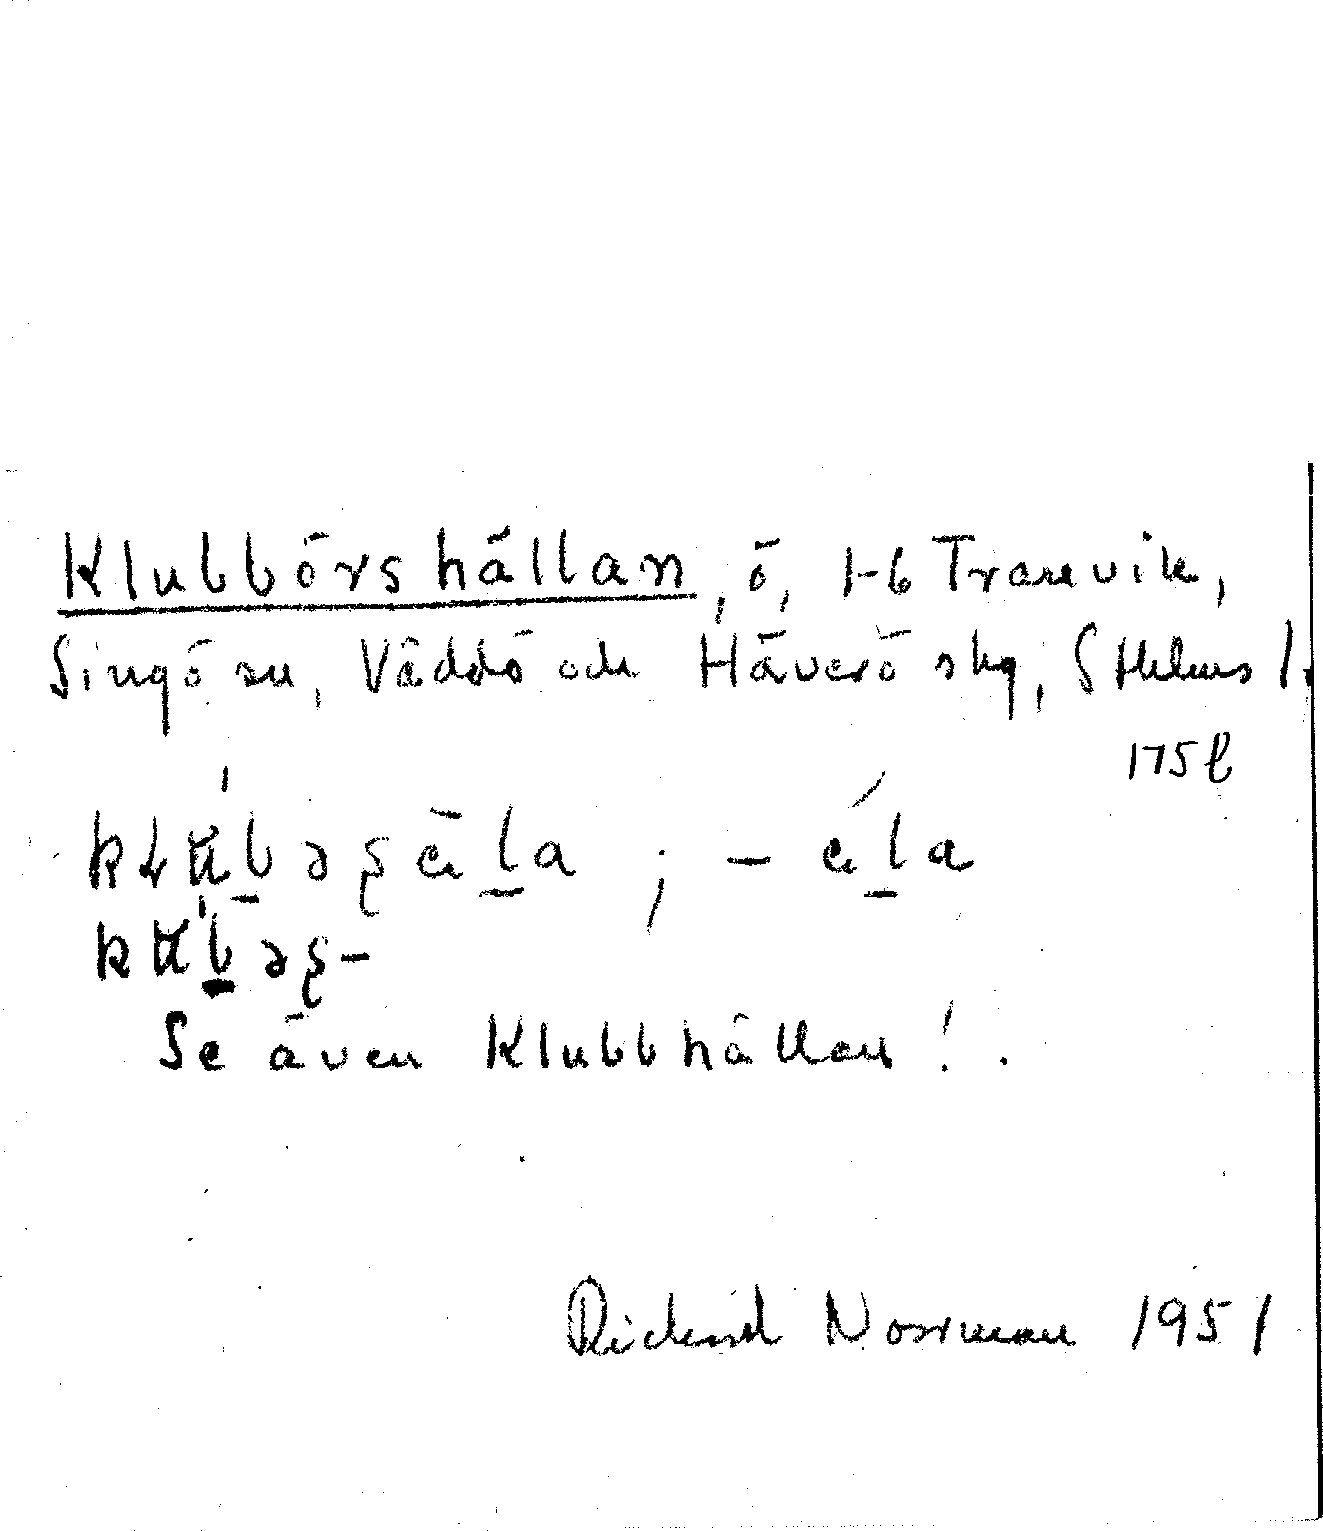 Klubbörshällan, ö, 1-6 Tranvik,
Singö sn, Väddö och Häverö skg, Sthlms l.
175 l
Se även Klubbhällan!.
Rickard Norrman 1951